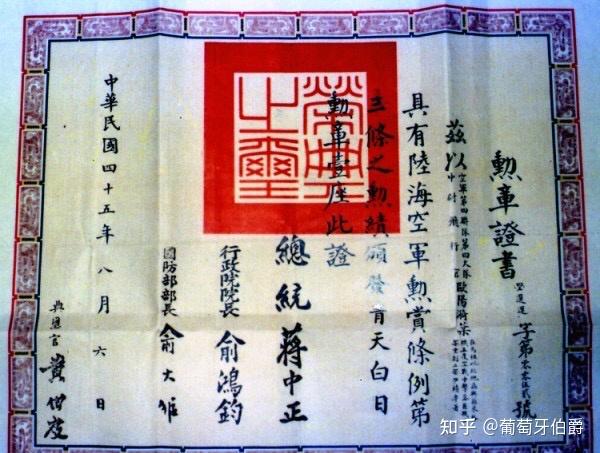 勲章證書
字第零零伍貳號
茲以空軍第四聯隊第四大隊
中尉飛行官歐陽漪棻
具有陸海空軍勲賞條例第
三條之勲績頒發青天白日
勲章壹座此證
榮典之璽
總統蔣中正
行政院院長俞鴻鈞
國防部部長俞大維
中華民國四十五年八月六日
典璽官
知乎 @葡萄牙伯爵